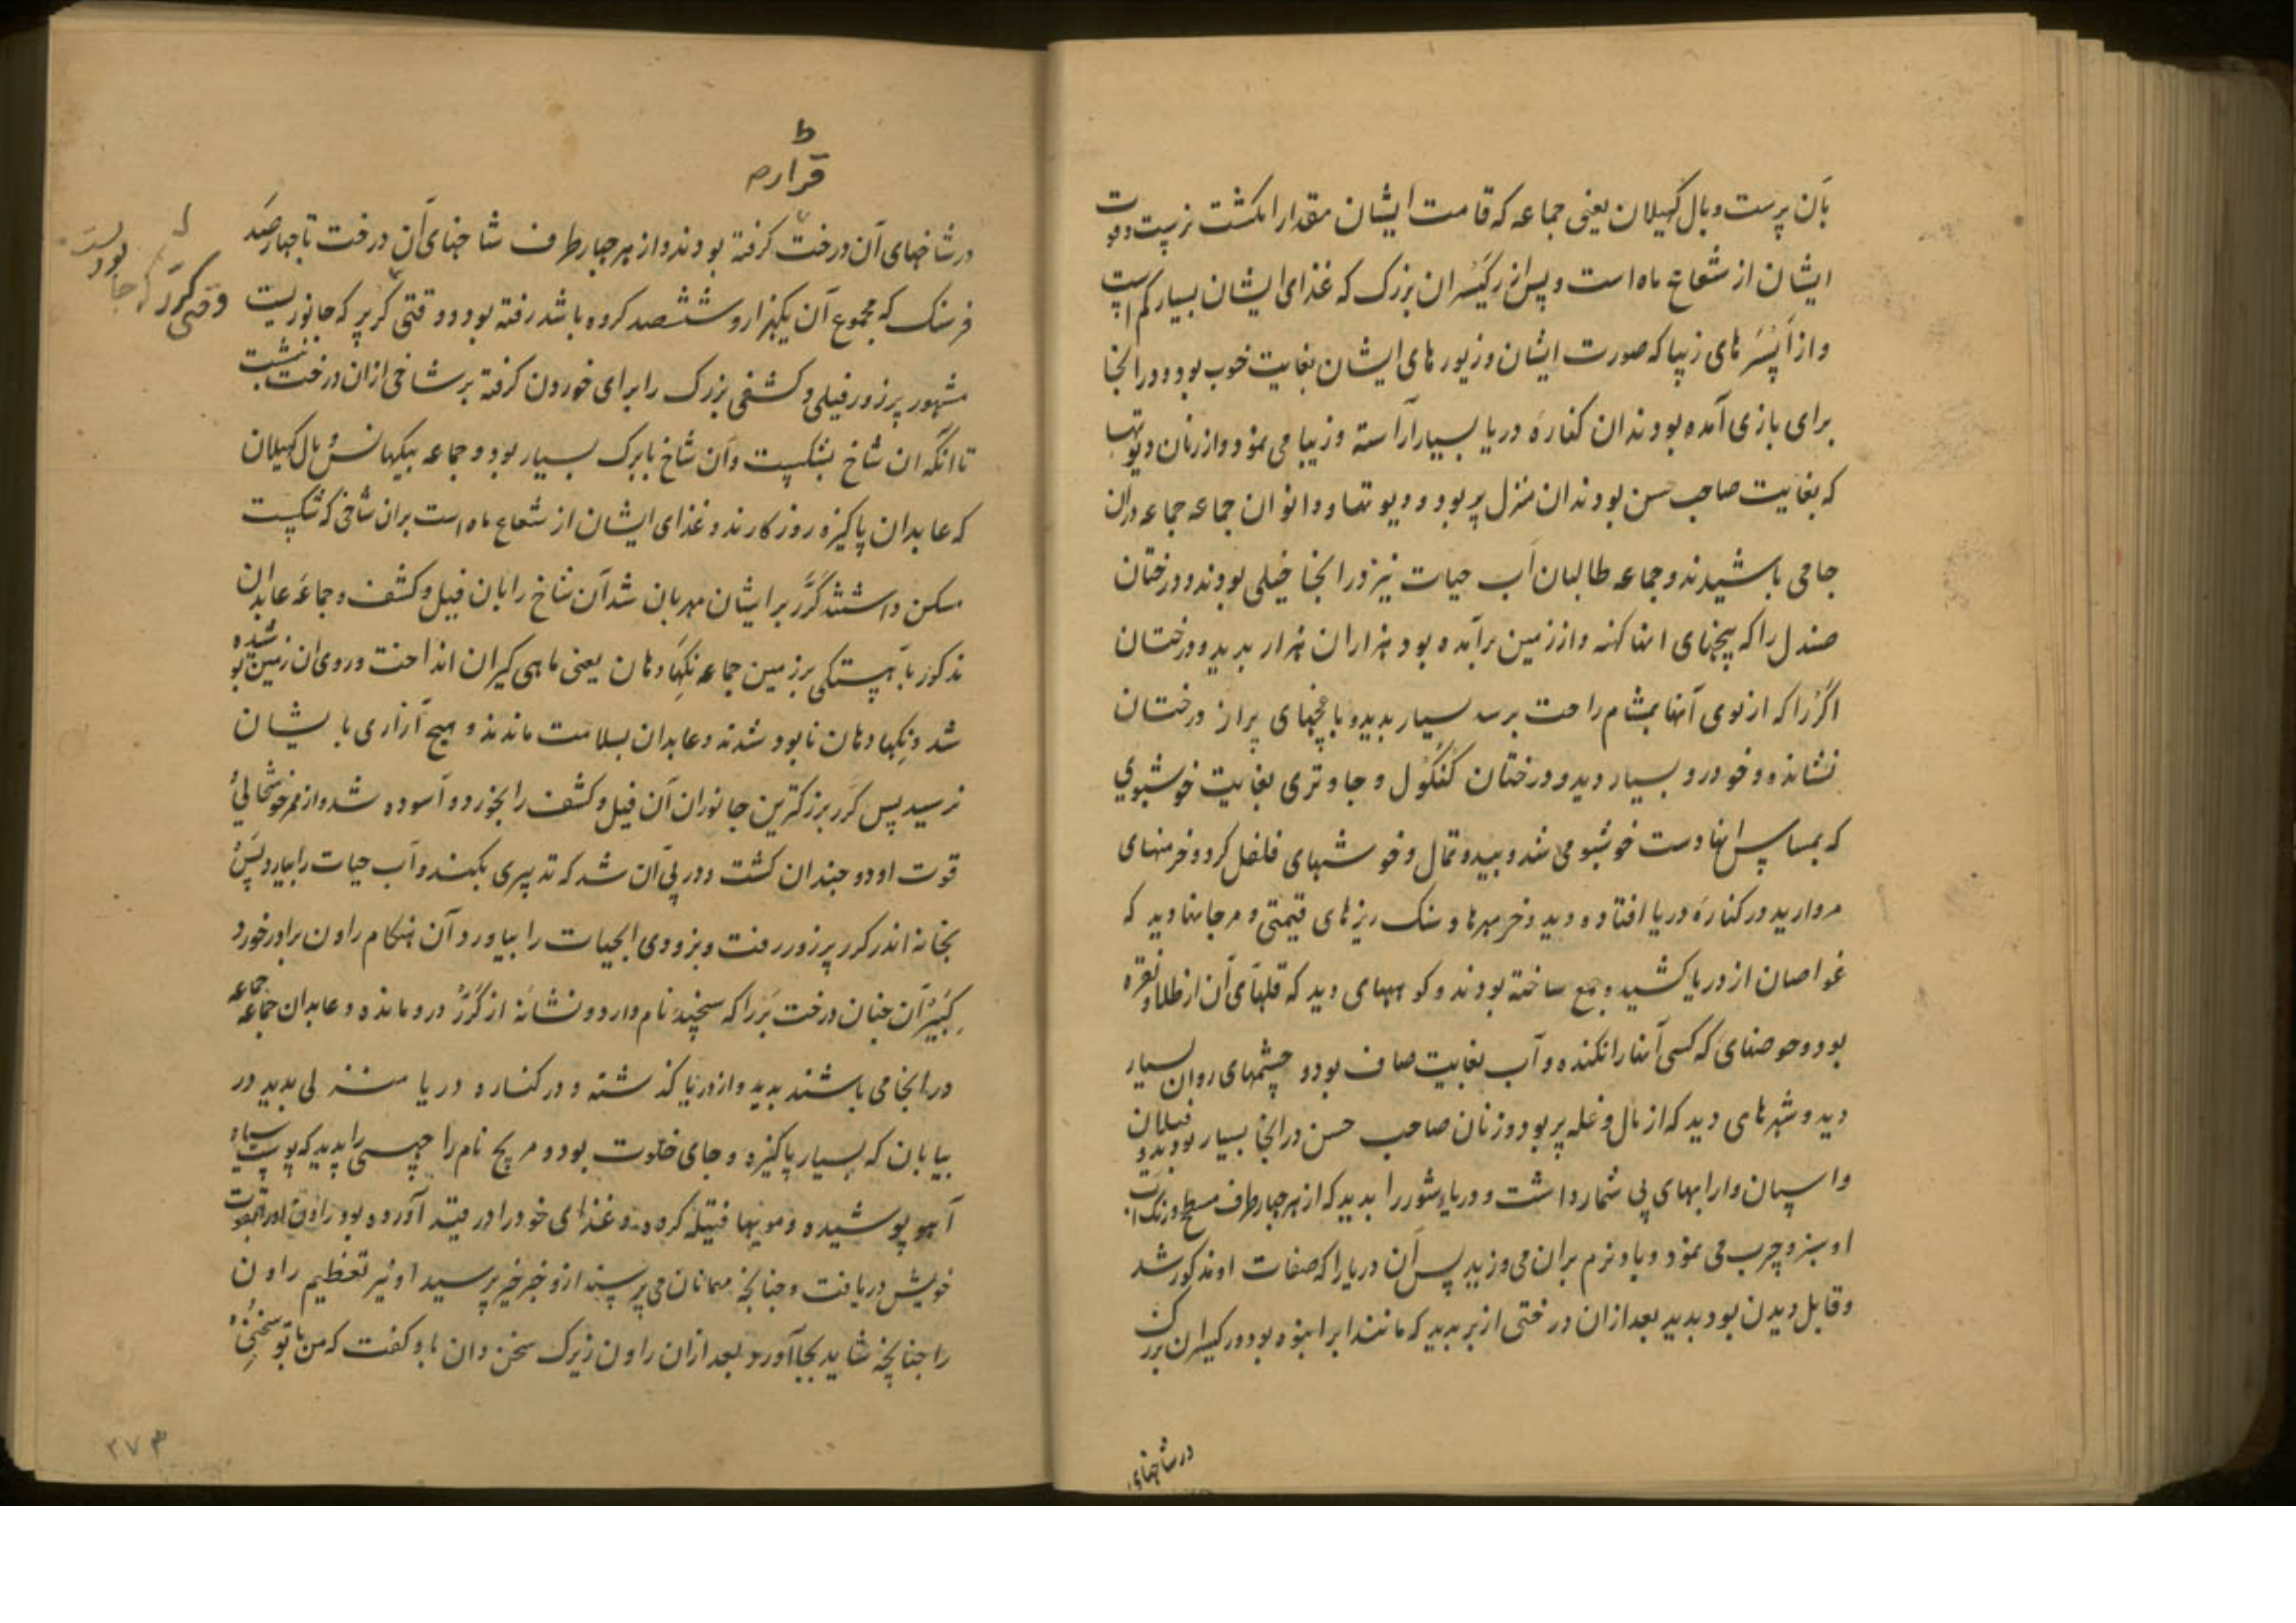 بان پرست و بال کهیلان یعنی جماعه که قامت ایشان مقدار انکشت نر یست و قوت
ایشان از شعاع ماه است و پس از کیسران بزرک که غذای ایشان بسیار کم است
و از اپسرهای زیبا که صورت ایشان و زیورهای ایشان بغایت خوب بود و در انجا
برای بازی آمده بودند ان کنارهٔ دریا بسیار آراسته و زیبا می نمود و از زنان دیوتها
که بغایت صاحب حسن بودند ان منزل پر بود و دیوتها و دانوان جماعه جماعه دران
جا می باشیدند و جماعه طالبان آب حیات نیز در انجا خیلی بودند و درختان
صندل را که بیخهای انها کهنه و از زمین برآمده بود هزاران هزار بدید و درختان
اکر را که از بوی آنها بمشام راحت برسد بسیار بدید و باغچهای پر از درختان
نشانده و خودرو بسیار دید و درختان کنکول و جاوتری بغایت خوشبوی
که بمساس انها دست خوشبو می شد و بید و تمال و خوشهای فلفل کرد و خرمنهای
مروارید در کنارهٔ دریا افتاده دید و خرمهرها و سنک ریزهای قیمتی و مرجانها دید که
غواصان از دریا کشیده جمع ساخته بودند و کوههای دید که قلهای آن از طلا و نقره
بود و حوضهای که کسی آنها را نکنده و آب بغایت صاف بود و چشمهای روان بسیار
دید و شهرهای دید که از مال و غله پر بود و زنان صاحب حسن در انجا بسیار بودند و فیلان
و اسپان و ارابهای بی شمار داشت و دریای شور را بدید که از هر چهار طرف مسطح و رنک آب
او سبز و چرب می نمود و باد نرم بران می وزید پس آن دریا را که صفات او مذکور شد
و قابل دیدن بود بدید بعد ازان درختی از بر بدید که مانند ابر انبوه بود و رکیسران بزرک
در شاخهای
قرارم
در شاخهای آن درخت کرفته بودند و از هر چهار طرف شاخهای آن درخت تا چهار صد
فرسنک که مجموع آن یکهزار و ششصد کروه باشد رفته بود و وقتی کرر که جانوریست
وقتی کرر که جانوریست
مشهور پرزور فیلی و کشفی بزرک را برای خوردن کرفته بر شاخی ازان درخت بنشست
تا انکه ان شاخ بشکست و آن شاخ با برک بسیار بود و جماعه بیکهانس و بال کهیلان
که عابدان پاکیزه روزکارند و غذای ایشان از شعاع ماه است بران شاخی که شکست
مسکن داشتند کرر بر ایشان مهربان شد آن شاخ را با ان فیل و کشف و جماعه عابدان
مذکور باهستکی بر زمین جماعه نکهادهان یعنی ماهی کیران انداخت و روی ان زمین شده بو
شد و نکهادهان نابود شدند و عابدان بسلامت ماندند و هیچ آزاری بایشان
نرسید پس کرر بزرکترین جانوران آن فیل و کشف را بخورد و آسوده شد و از ممر خوشحالی
قوت او دو چندان کشت و در پی آن شد که تدبیری بکند و آب حیات را بیارد پس
بخانه اندر کرر پرزور رفت و بزودی ابحیات را بیاورد آن هنکام راون برادر خورد
کبیر آن چنان درخت بر را که سچند نام دارد و نشانه از کرر درو مانده و عابدان جماعه جماعه
در انجا می باشند بدید و از دریا کذشته و در کناره دریا منزلی بدید در
بیابان که بسیار پاکیزه و جای خلوت بود و مریچ نام راچهسی را بدید که پوست سیاه
آهو پوشیده و مویها فتیله کرده و غذای خود را در قید آورده بود راون او را بصورت
خویش دریافت و چنانچه مهمانان می پرسند ازو خبر خیر پرسید او نیز تعظیم راون
را چنانچه شاید بجا آورد بعد ازان راون زیرک سخن دان باو کفت که من با تو سخنی
۳۷۳